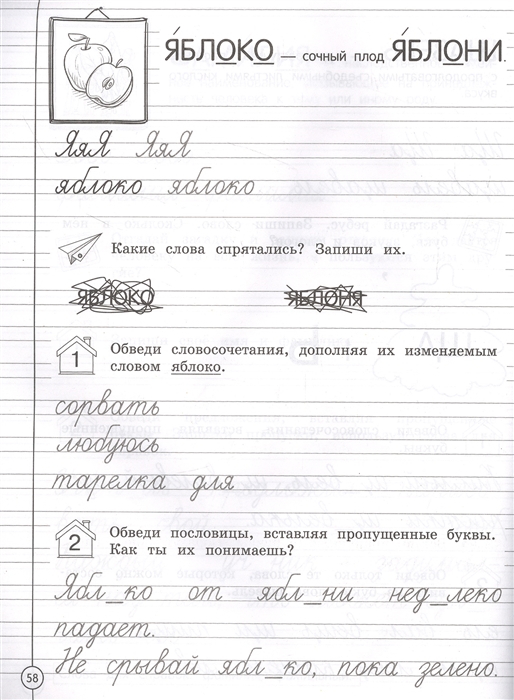 ЯБЛОКО — сочный плод ЯБЛОНИ.
ЯяЯ ЯяЯ
яблоко яблоко
Какие слова спрятались? Запиши их.
ЯБЛОКО ЯБЛОНЯ
1 Обведи словосочетания, дополняя их изменяемым
словом яблоко.
сорвать
любуюсь
тарелка для
2 Обведи пословицы, вставляя пропущенные буквы.
Как ты их понимаешь?
Ябл_ко от ябл_ни нед_леко
падает.
Не срывай ябл_ко, пока зелено.
58